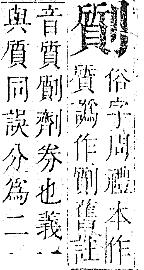 劕
俗字周禮本作
質譌作劕舊註
音質劕劑券也義
與質同誤分爲二